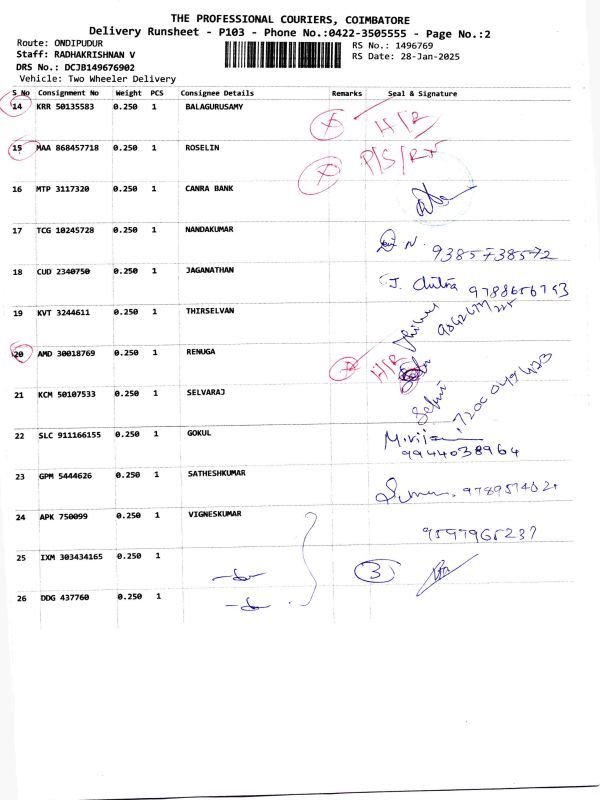 THE PROFESSIONAL COURIERS, COIMBATORE
Delivery Runsheet - P103 - Phone No.:0422-3505555 - Page No.:2
Route: ONDIPUDUR
RS No.: 1496769
Staff: RADHAKRISHNAN V
RS Date: 28-Jan-2025
DRS No.: DCJB149676902
Vehicle: Two Wheeler Delivery
S No Consignment No Weight PCS Consignee Details Remarks Seal & Signature
14 KRR 50135583 0.250 1 BALAGURUSAMY H/R
15 MAA 868457718 0.250 1 ROSELIN
16 MTP 3117320 0.250 1 CANRA BANK
17 TCG 10245728 0.250 1 NANDAKUMAR 9385738572
18 CUD 2340750 0.250 1 JAGANATHAN J. Chitra 9788656753
19 KVT 3244611 0.250 1 THIRSELVAN
20 AMD 30018769 0.250 1 RENUGA H/R
21 KCM 50107533 0.250 1 SELVARAJ
22 SLC 911166155 0.250 1 GOKUL 9944038964
23 GPM 5444626 0.250 1 SATHESHKUMAR
24 APK 750099 0.250 1 VIGNESKUMAR 9597965237
25 IXM 303434165 0.250 1 3
26 DDG 437760 0.250 1